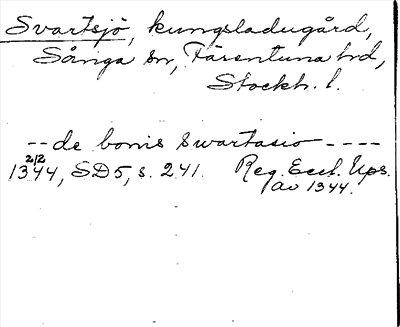 Svartsjö, kungsladugård,
Sånga sn, Färentuna hd,
Stockh. l.
-- de bonis Swartasio ----
2/2
1344, SD5, s. 241. Reg. Eccl. Ups.
av 1344.